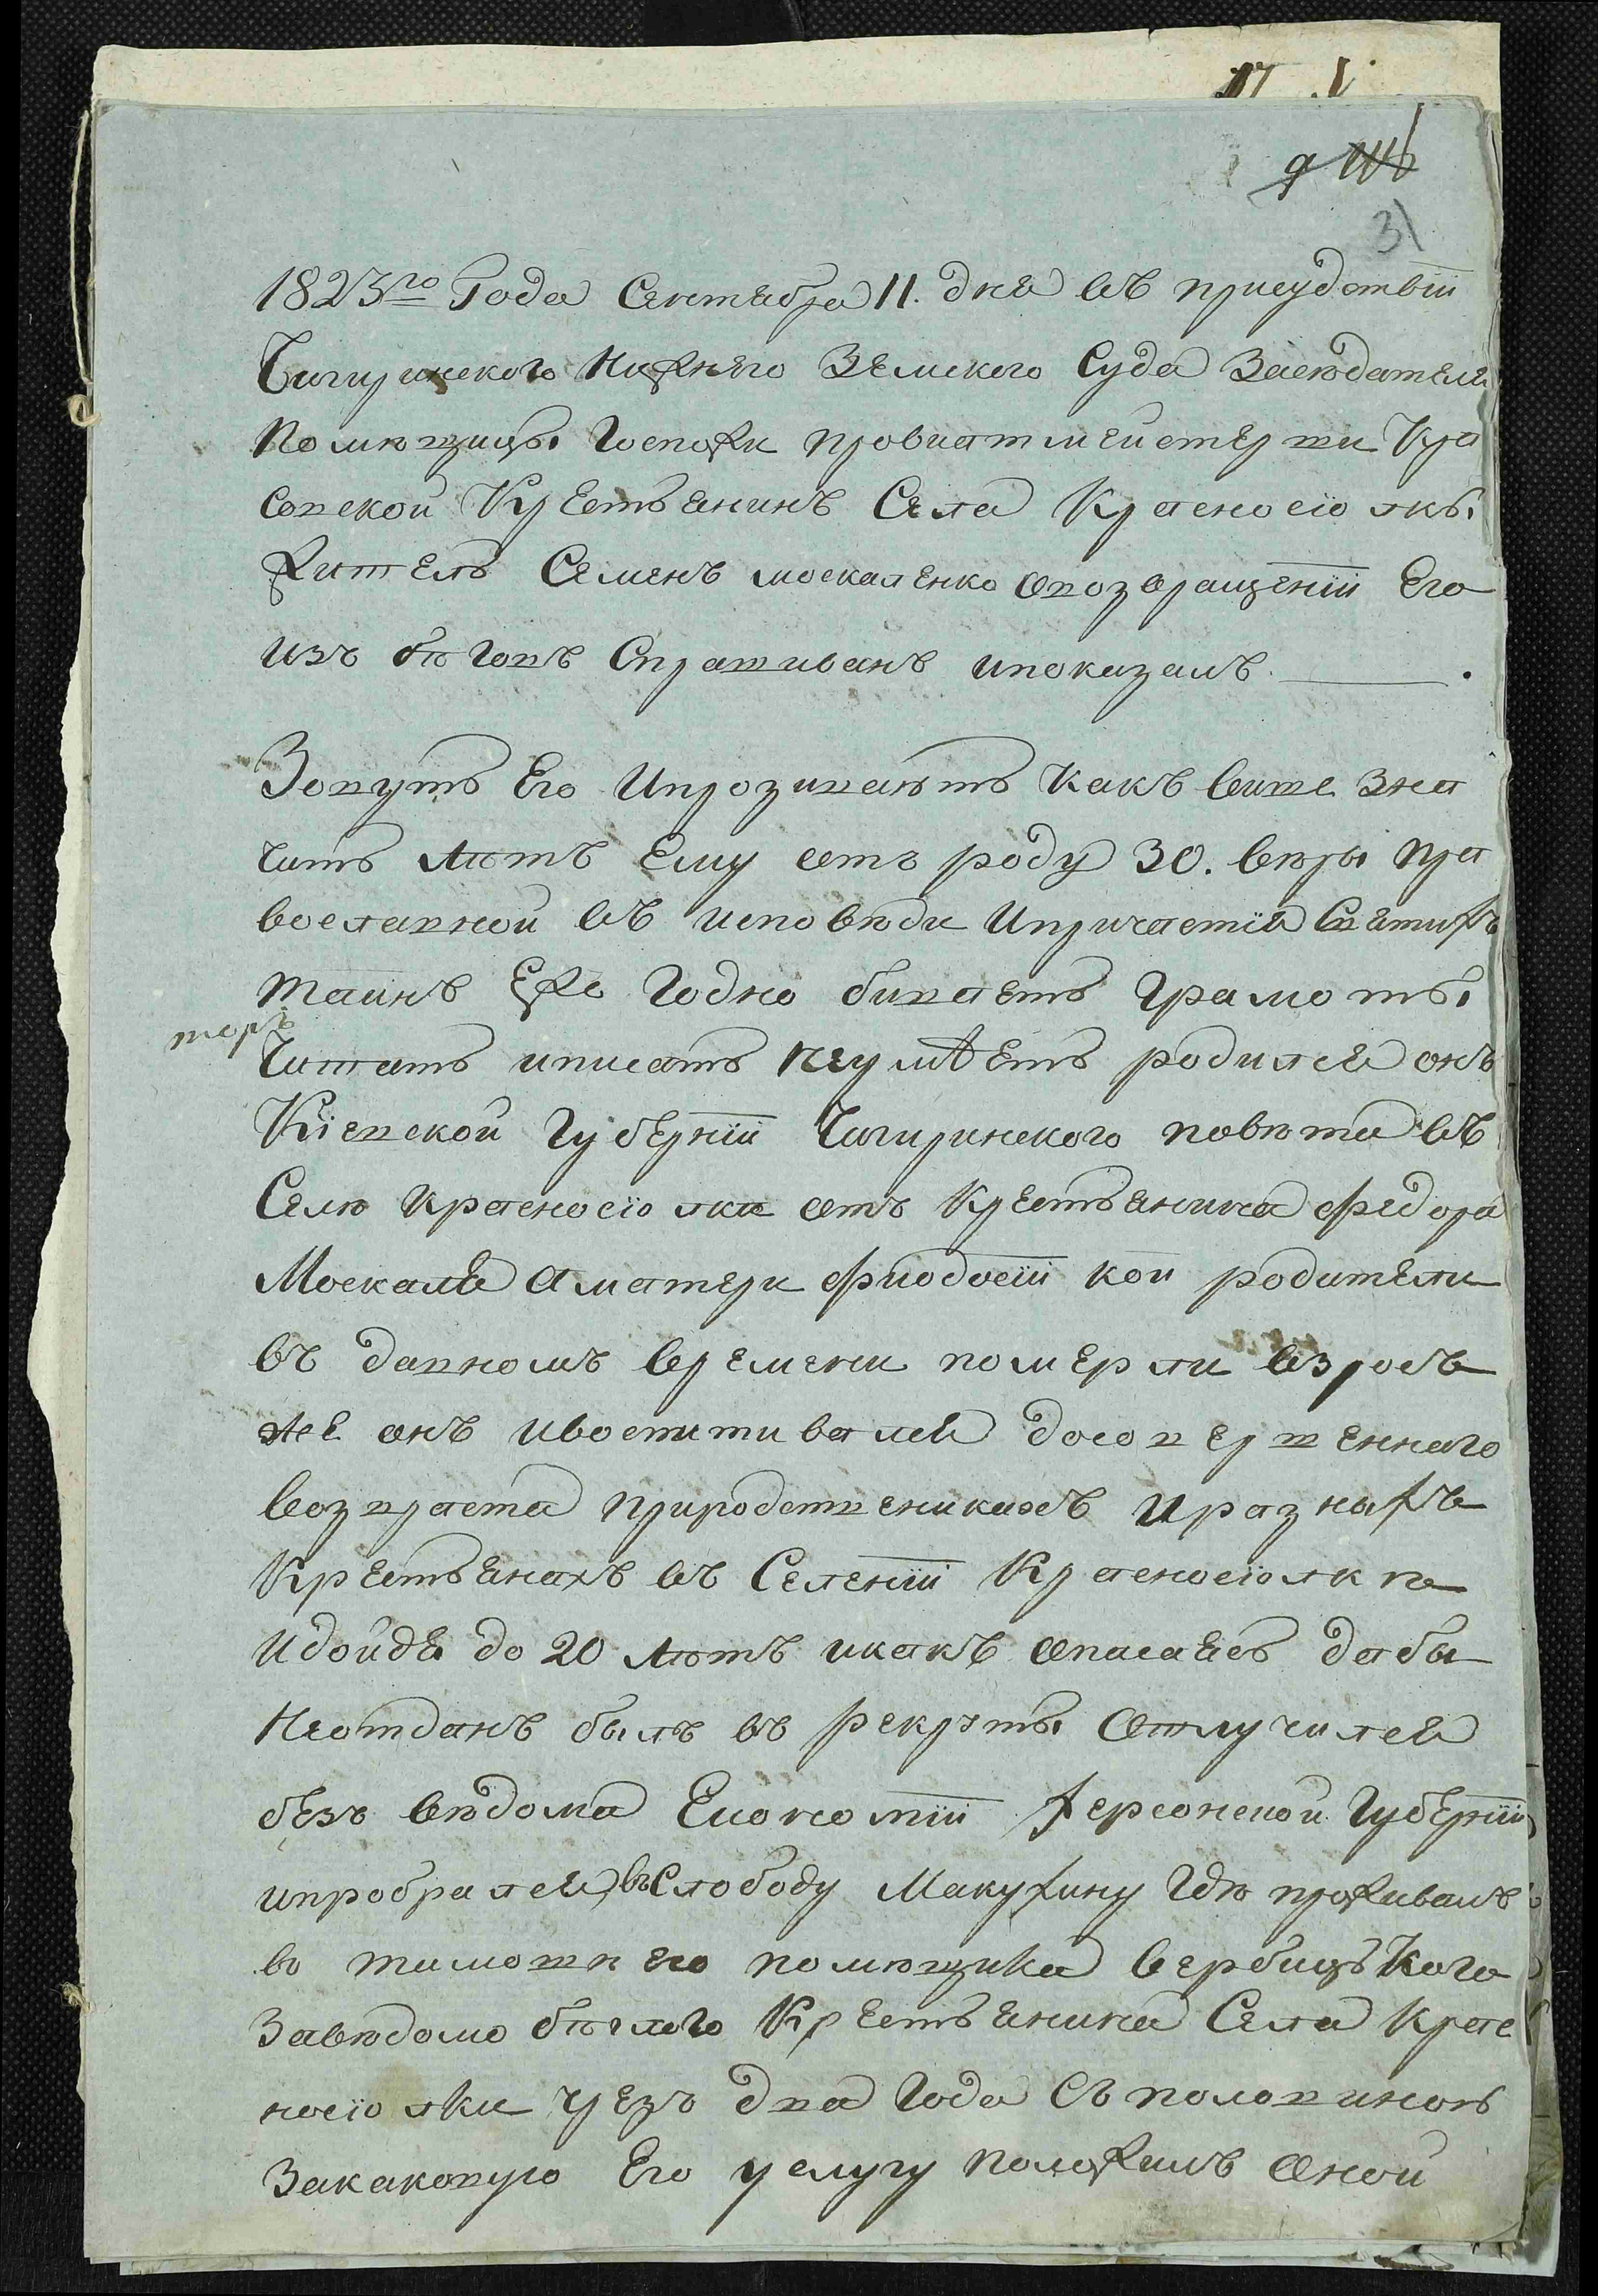 31
1823го Года Сентебра 11. дня въ присудствіи
Чигиринского Нижнего Земского Суда Заседателя
Помѣщицы Госпожи провиатмейстерши Кра
совской Крестьянинъ Села Красносіолкы
житель Семенъ москаленко овозвращеніи Его
изъ бѣговъ Спрашиванъ ипоказалъ.
Зовутъ Его Ипрозиваютъ Какъ више Зна
читъ лѣтъ Ему отъ роду 30. вѣры пра
вославной въ исповѣди Ипричастія Святихъ
таинъ Еже Годно биваетъ Грамоты
Читать иписать неумѣетъ родился онъ
Кіевской Губерніи Чигиринского повѣта въ
Селѣ красносіолки отъ Крестьянина Федора
Москаля Аматери Фиодосіи кои родители
въ давномъ времени померли взросъ
же онъ Ивоспитивался досовершеннаго
возвраста Природственикахъ И разнихъ
Крестьянахъ въ Селеніи Красносіолкѣ
Идойдя до 20 лѣтъ икакъ опасаясь дабы
Неотданъ былъ въ рекруты Отлучился
безъ вѣдома Екокоміи херсонской Губерніи
ипробрался въ Слободу Макухину Гдѣ проживалъ
во тамошнего помѣщика вербицькаго
Завѣдомо бѣглого Крестьянина Села Крас
носіолки чрезъ два Года Съ половиною
Закаковую Его услугу положилъ Оной